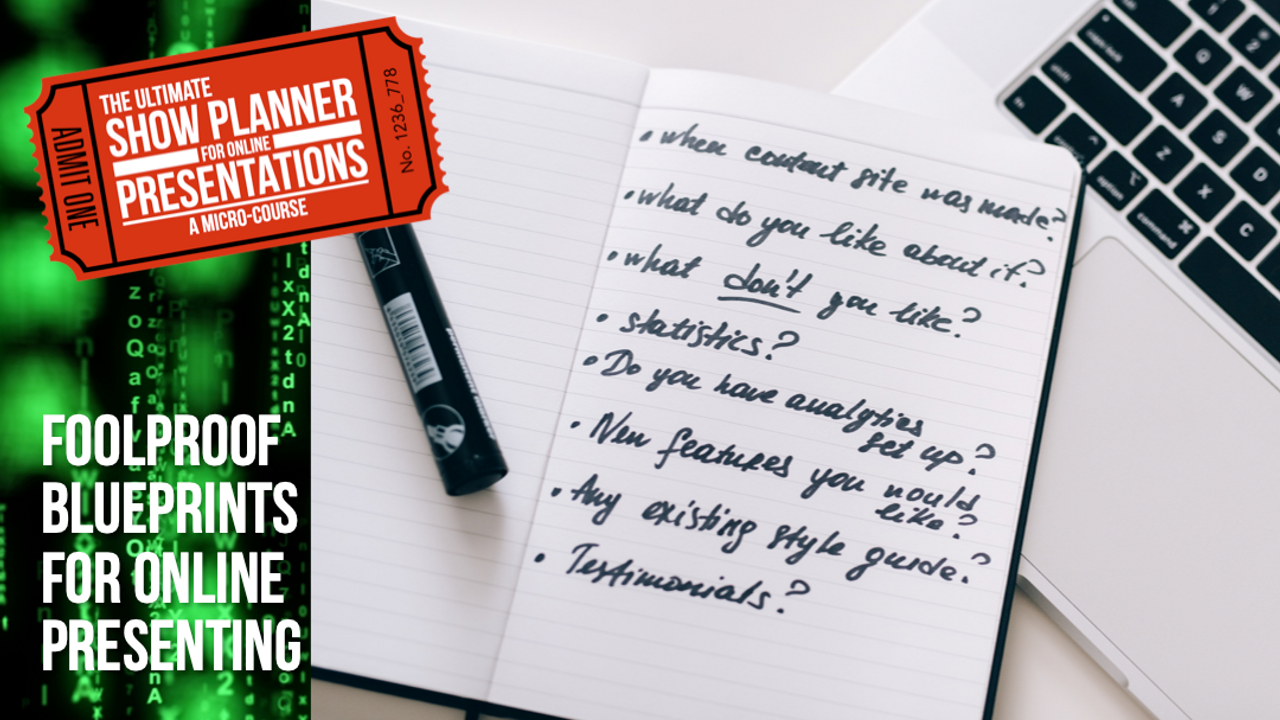 ADMIT ONE
THE ULTIMATE
SHOW PLANNER
FOR ONLINE
PRESENTATIONS
A MICRO-COURSE
No. 1236_778
FOOLPROOF
BLUEPRINTS
FOR ONLINE
PRESENTING
• when content site was made?
• what do you like about it?
• what don't you like?
• statistics?
• Do you have analytics
set up?
• New features you would
like?
• Any existing style guide?
• Testimonials?
option
command
Q
W
A
S
D
Z
X
C